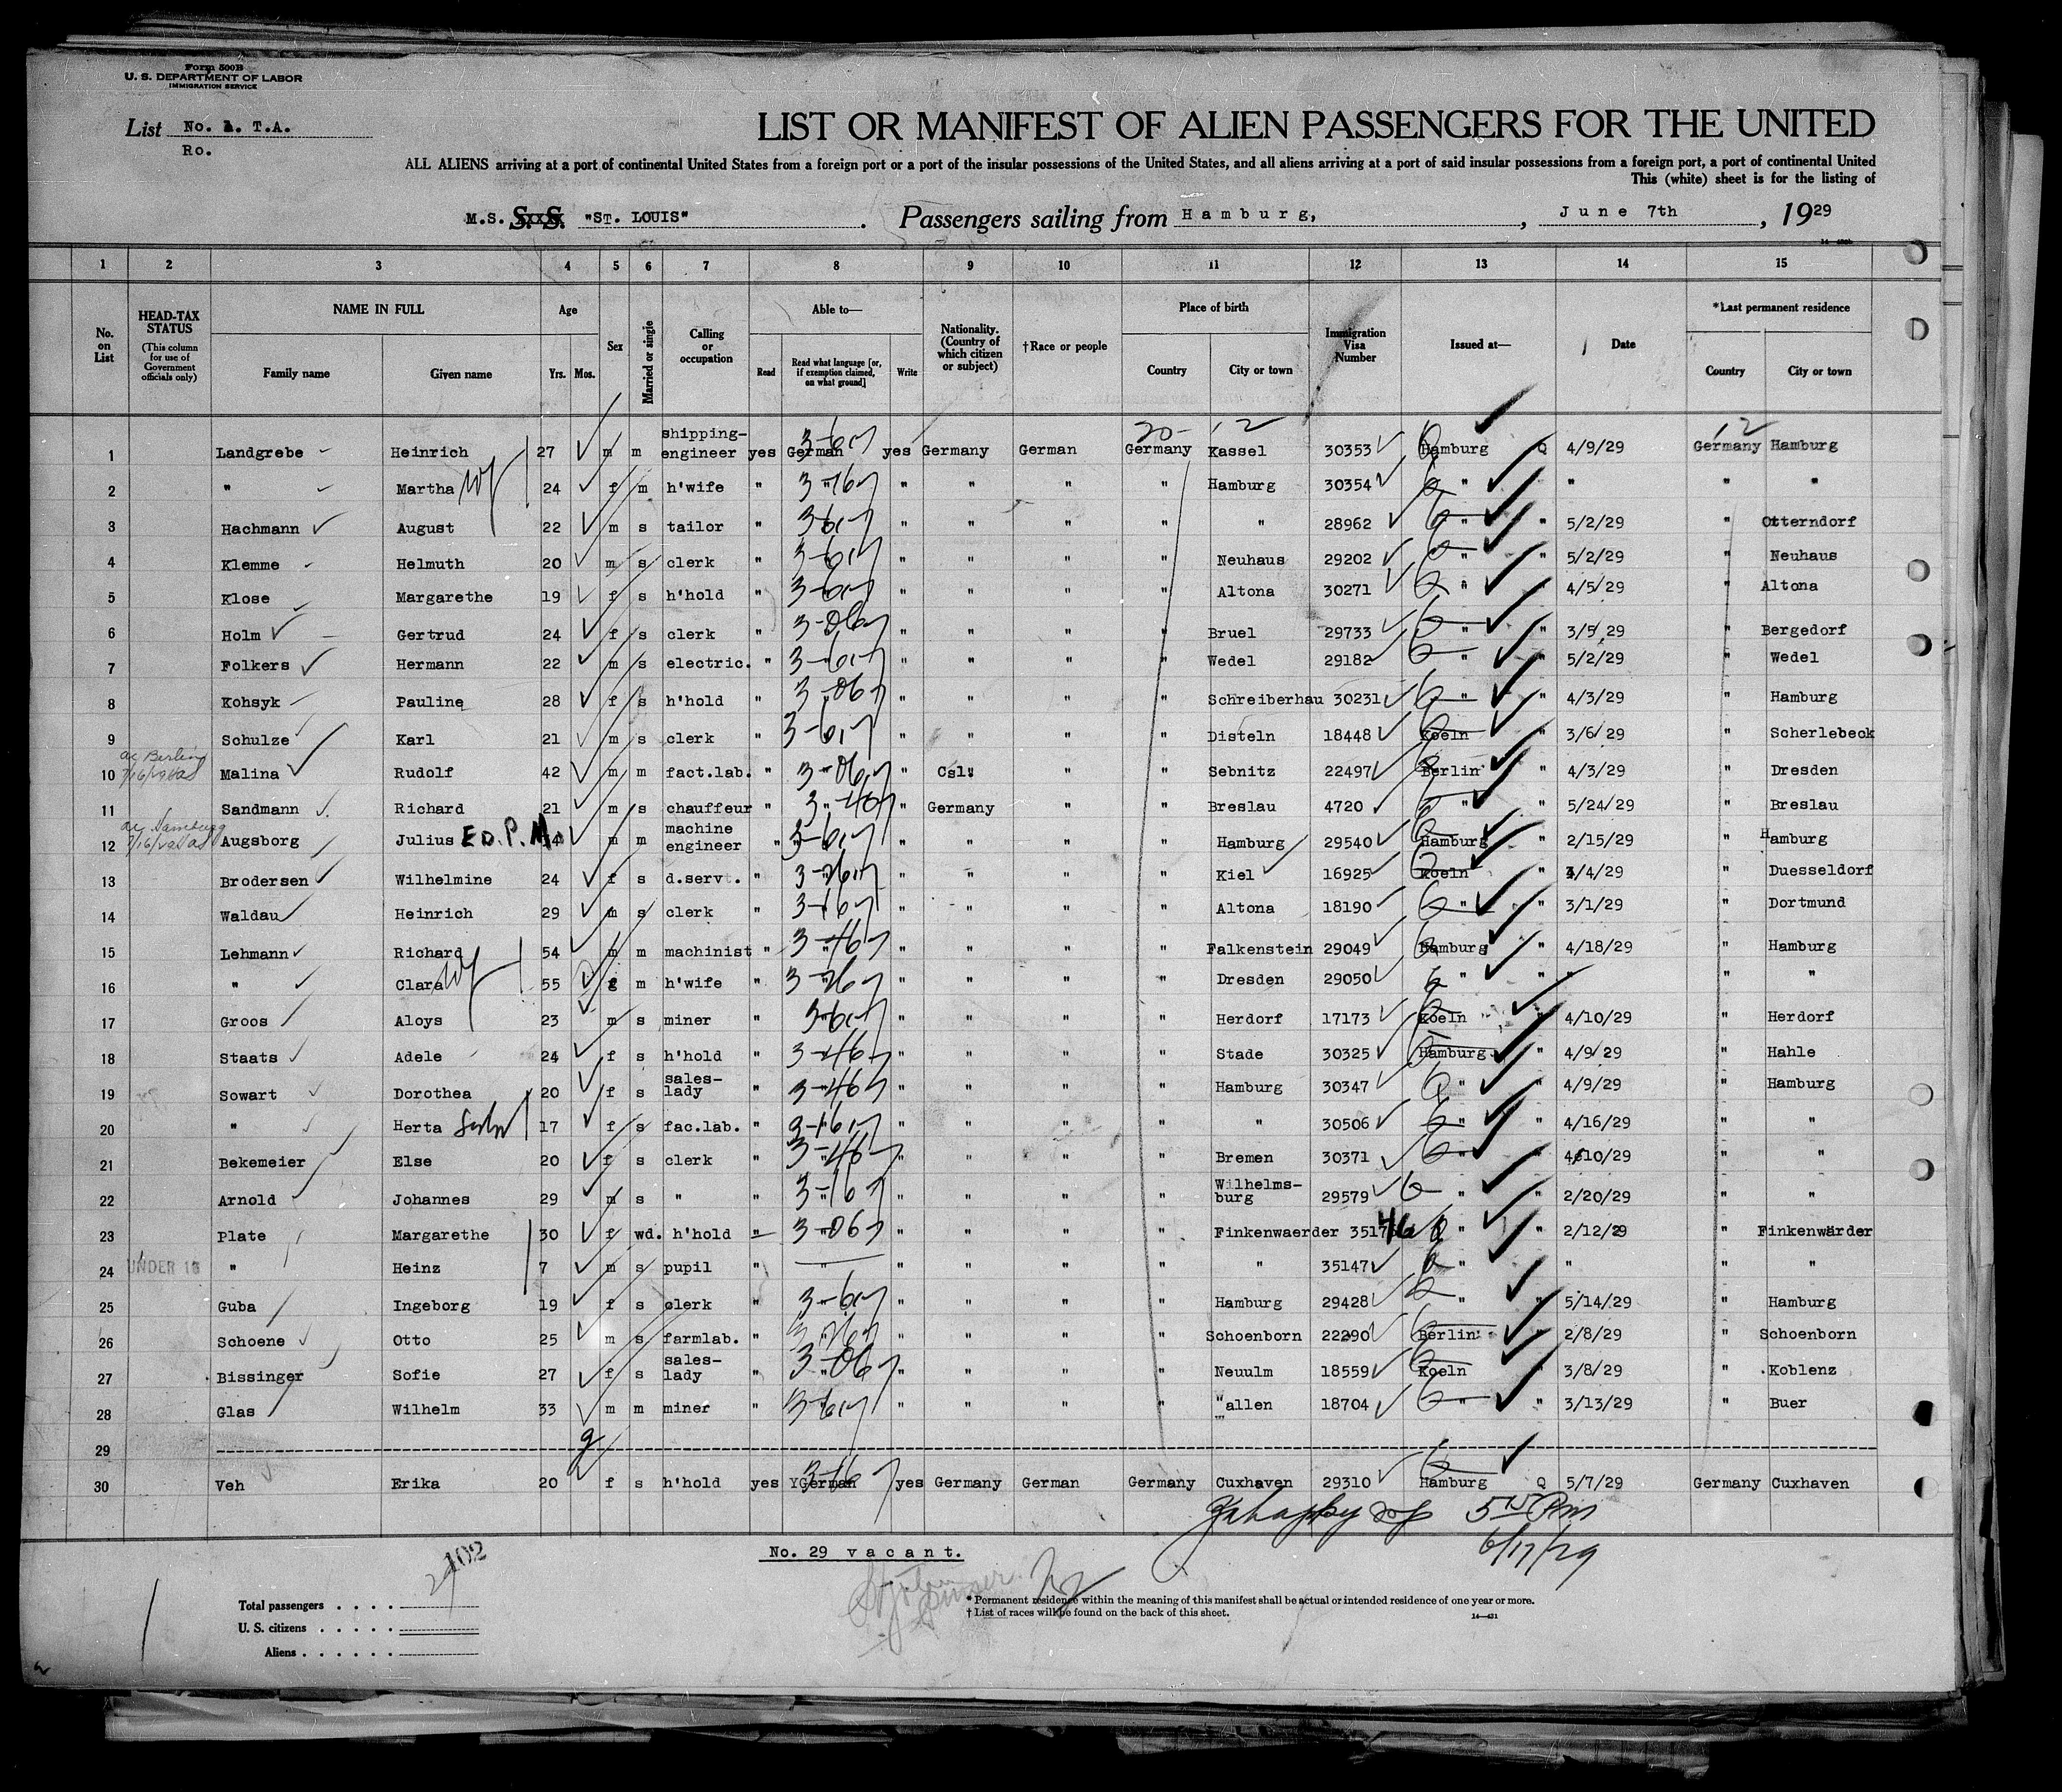 Form 500B
U. S. DEPARTMENT OF LABOR
IMMIGRATION SERVICE
List No. 1. T.A.
Ro.
LIST OR MANIFEST OF ALIEN PASSENGERS FOR THE UNITED
ALL ALIENS arriving at a port of continental United States from a foreign port or a port of the insular possessions of the United States, and all aliens arriving at a port of said insular possessions from a foreign port, a port of continental United
This (white) sheet is for the listing of
M.S. S. S. "ST. LOUIS" . Passengers sailing from Hamburg, , June 7th , 1929
1 2 3 4 5 6 7 8 9 10 11 12 13 14 15
No. on List
HEAD-TAX STATUS (This column for use of Government officials only)
NAME IN FULL Family name Given name
Age Yrs. Mos.
Sex
Married or single
Calling or occupation
Able to— Read Read what language [or, if exemption claimed, on what ground] Write
Nationality. (Country of which citizen or subject)
†Race or people
Place of birth Country City or town
Immigration Visa Number
Issued at—
Date
*Last permanent residence Country City or town
20- 12 12
1 Landgrebe Heinrich 27 m m shipping-engineer yes German yes Germany German Germany Kassel 30353 Hamburg Q 4/9/29 Germany Hamburg
2 " Martha wf 24 f m h'wife " " " " " " Hamburg 30354 " " " "
3 Hachmann August 22 m s tailor " " " " " " " 28962 " " 5/2/29 " Otterndorf
4 Klemme Helmuth 20 m s clerk " " " " " Neuhaus 29202 " " 5/2/29 " Neuhaus
5 Klose Margarethe 19 f s h'hold " " " " " Altona 30271 " " 4/5/29 " Altona
6 Holm Gertrud 24 f s clerk " " " " " Bruel 29733 " " 3/5/29 " Bergedorf
7 Folkers Hermann 22 m s electric. " " " " " Wedel 29182 " " 5/2/29 " Wedel
8 Kohsyk Pauline 28 f s h'hold " " " " " Schreiberhau 30231 " " 4/3/29 " Hamburg
9 Schulze Karl 21 m s clerk " " " " " Disteln 18448 Koeln " 3/6/29 " Scherlebeck
10 Malina Rudolf 42 m m fact.lab. " " " Csl. " " Sebnitz 22497 Berlin " 4/3/29 " Dresden
11 Sandmann Richard 21 m s chauffeur " " " Germany " " Breslau 4720 " " 5/24/29 " Breslau
12 Augsborg Julius m m machine engineer " " " " " " Hamburg 29540 Hamburg " 2/15/29 " Hamburg
13 Brodersen Wilhelmine 24 f s d.serv. " " " " " Kiel 16925 Koeln " 4/4/29 " Duesseldorf
14 Waldau Heinrich 29 m s clerk " " " " " Altona 18190 " " 3/1/29 " Dortmund
15 Lehmann Richard 54 m m machinist " " " " " " Falkenstein 29049 Hamburg " 4/18/29 " Hamburg
16 " Clara wf 55 f m h'wife " " " " " " Dresden 29050 " " " " "
17 Groos Aloys 23 m s miner " " " " " " Herdorf 17173 Koeln " 4/10/29 " Herdorf
18 Staats Adele 24 f s h'hold " " " " " Stade 30325 Hamburg " 4/9/29 " Hahle
19 Sowart Dorothea 20 f s sales-lady " " " " " " Hamburg 30347 " " 4/9/29 " Hamburg
20 " Herta 17 f s fac.lab. " " " " " " 30506 " " 4/16/29 " "
21 Bekemeier Else 20 f s clerk " " " " " " Bremen 30371 " " 4/10/29 " "
22 Arnold Johannes 29 m s " " " " " " " Wilhelms-burg 29579 " " 2/20/29 " "
23 Plate Margarethe 30 f wd. h'hold " " " " " " Finkenwaerder 35146 " " 2/12/29 " Finkenwärder
24 UNDER 16 " Heinz 7 m s pupil " " " " " " 35147 " " " " "
25 Guba Ingeborg 19 f s clerk " " " " " " Hamburg 29428 " " 5/14/29 " Hamburg
26 Schoene Otto 25 m s farmlab. " " " " " Schoenborn 22290 Berlin " 2/8/29 " Schoenborn
27 Bissinger Sofie 27 f s sales-lady " " " " " " Neuulm 18559 Koeln " 3/8/29 " Koblenz
28 Glas Wilhelm 33 m m miner " " " " " allen 18704 " " 3/13/29 " Buer
29
30 Veh Erika 20 f s h'hold yes German yes Germany German Germany Cuxhaven 29310 Hamburg Q 5/7/29 Germany Cuxhaven
5 15 Pm
6/17/29
No. 29 vacant.
102
Total passengers
U. S. citizens
Aliens
* Permanent residence within the meaning of this manifest shall be actual or intended residence of one year or more.
† List of races will be found on the back of this sheet.
14—431